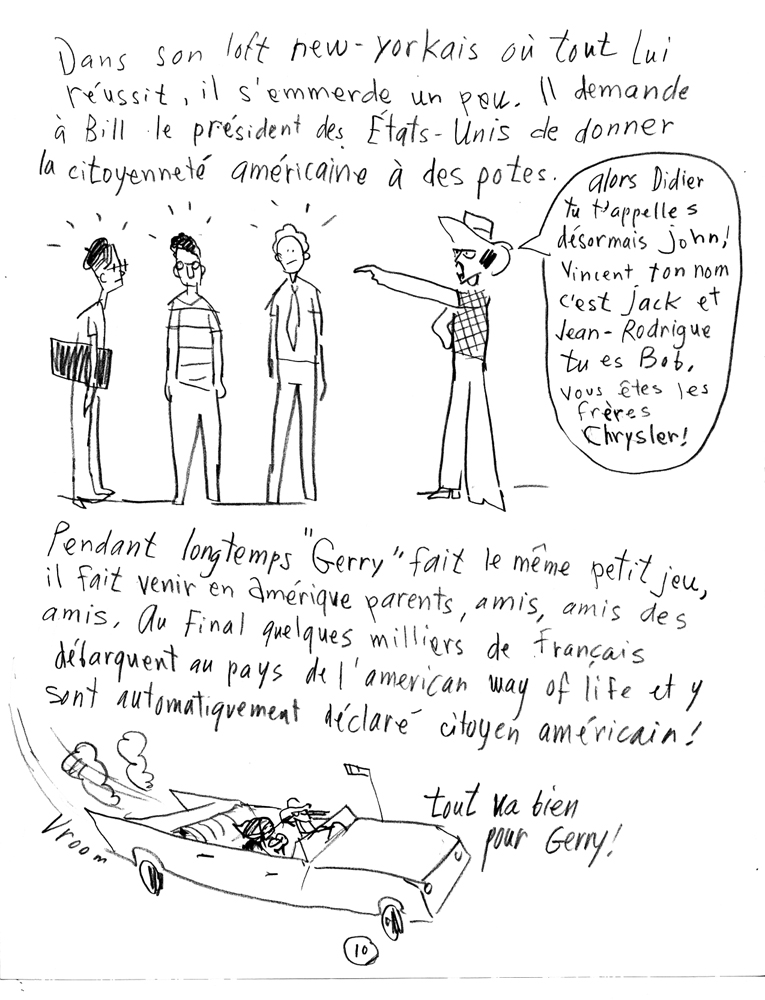 Dans son loft new-yorkais où tout lui
réussit, il s'emmerde un peu. Il demande
à Bill le président des États-Unis de donner
la citoyenneté américaine à des potes.
alors Didier
tu t'appelles
désormais john!
Vincent ton nom
c'est jack et
Jean-Rodrigue
tu es Bob.
vous êtes les
frères
Chrysler!
Pendant longtemps "Gerry" fait le même petit jeu,
il fait venir en amérique parents, amis, amis des
amis. Au final quelques milliers de français
débarquent au pays de l'american way of life et y
sont automatiquement déclaré citoyen américain!
Vroom
tout va bien
pour Gerry!
10